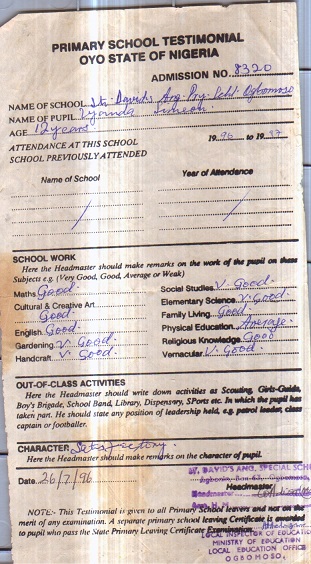 PRIMARY SCHOOL TESTIMONIAL
OYO STATE OF NIGERIA
ADMISSION NO. 8320
NAME OF SCHOOL St. David's Ang. Pry. Schl. Ogbomoso
NAME OF PUPIL Simeon
AGE 12 years.
ATTENDANCE AT THIS SCHOOL 19 96 to 19 97
SCHOOL PREVIOUSLY ATTENDED
Name of School Year of Attendance
SCHOOL WORK
Here the Headmaster should make remarks on the work of the pupil on these
Subjects e.g. (Very Good, Good, Average or Weak)
Maths Good
Cultural & Creative Art
Good.
English Good.
Gardening V. Good.
Handcraft. V. Good.
Social Studies V. Good.
Elementary Science V. Good.
Family Living Good
Physical Education Average.
Religious Knowledge Good
Vernacular V. Good.
OUT-OF-CLASS ACTIVITIES
Here the Headmaster should write down activities as Scouting, Girls-Guide,
Boy's Brigade, School Band, Library, Dispensary, SPorts etc. In which the pupil has
taken part. He should state any position of leadership held, e.g. patrol leader, class
captain or footballer.
CHARACTER Satisfactory.
Here the Headmaster should make remarks on the character of pupil.
ST. DAVID'S ANG. SPECIAL SCH
Date 26/7/96
Headmaster
Headmaster
NOTE:- This Testimonial is given to all Primary School leavers and not on the
merit of any examination. A separate primary school leaving Certificate is awarded
to pupil who pass the State Primary Leaving Certificate Examination.
LOCAL INSPECTOR OF EDUCATION
MINISTRY OF EDUCATION
LOCAL EDUCATION OFFICE
OGBOMOSO.